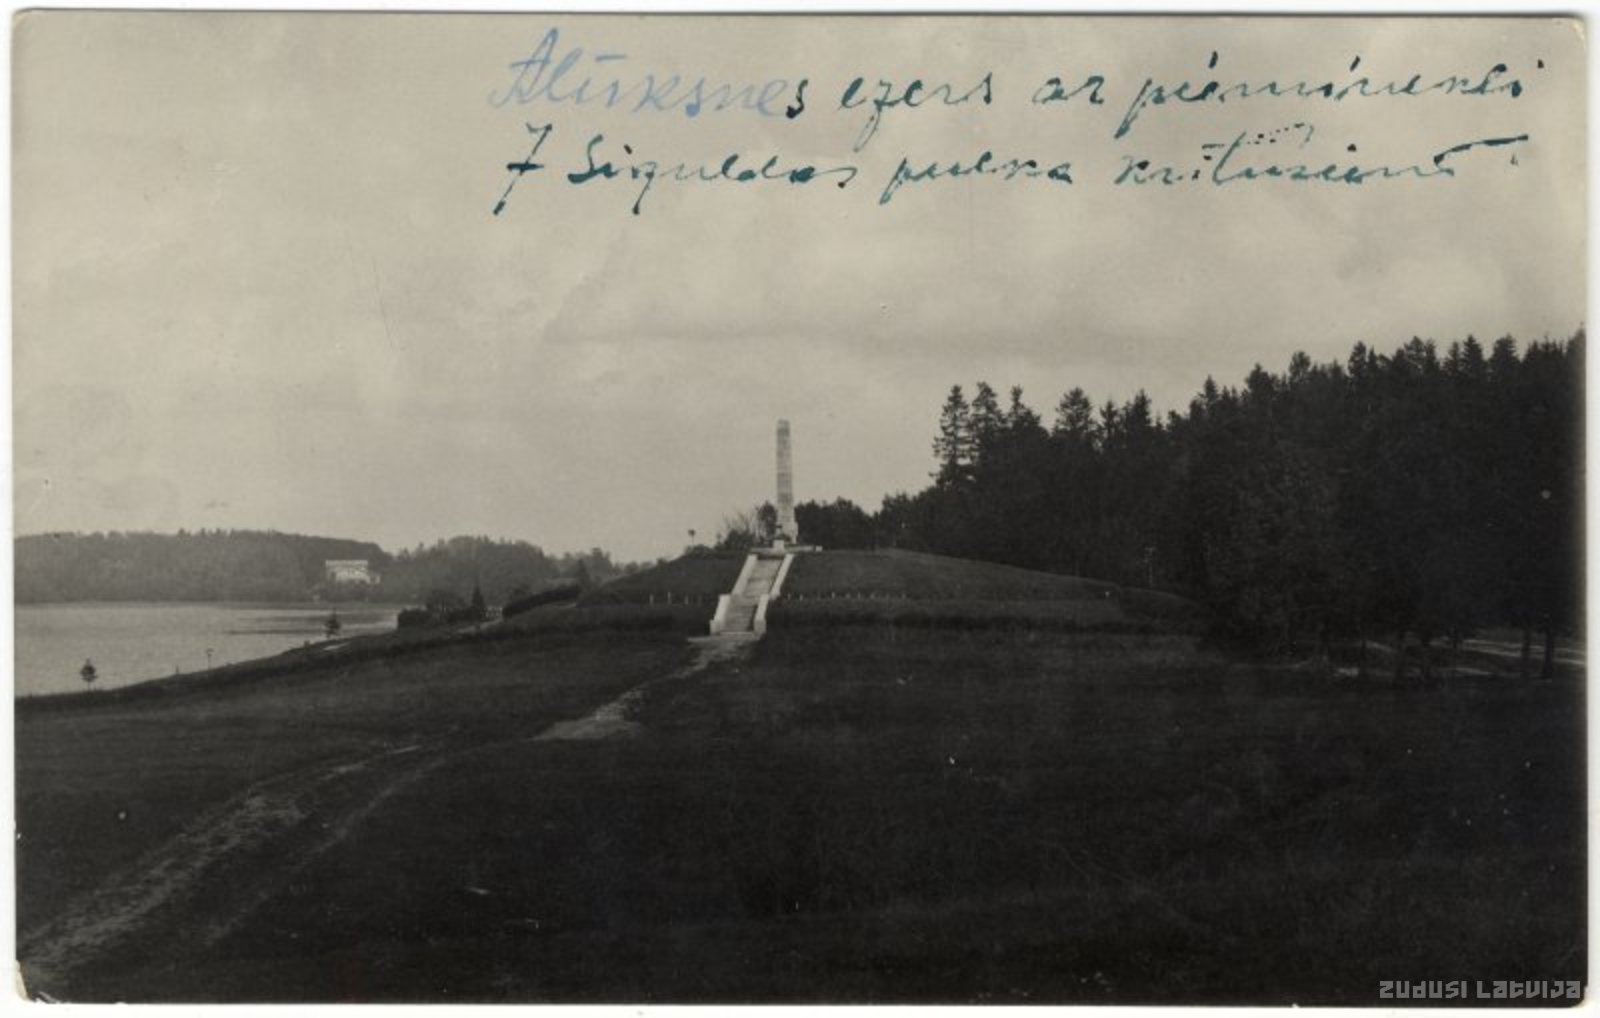 Alūksnes ezers ar pieminekli
7 Siguldas pulka kritušiem
ZUDUSI LATVIJA